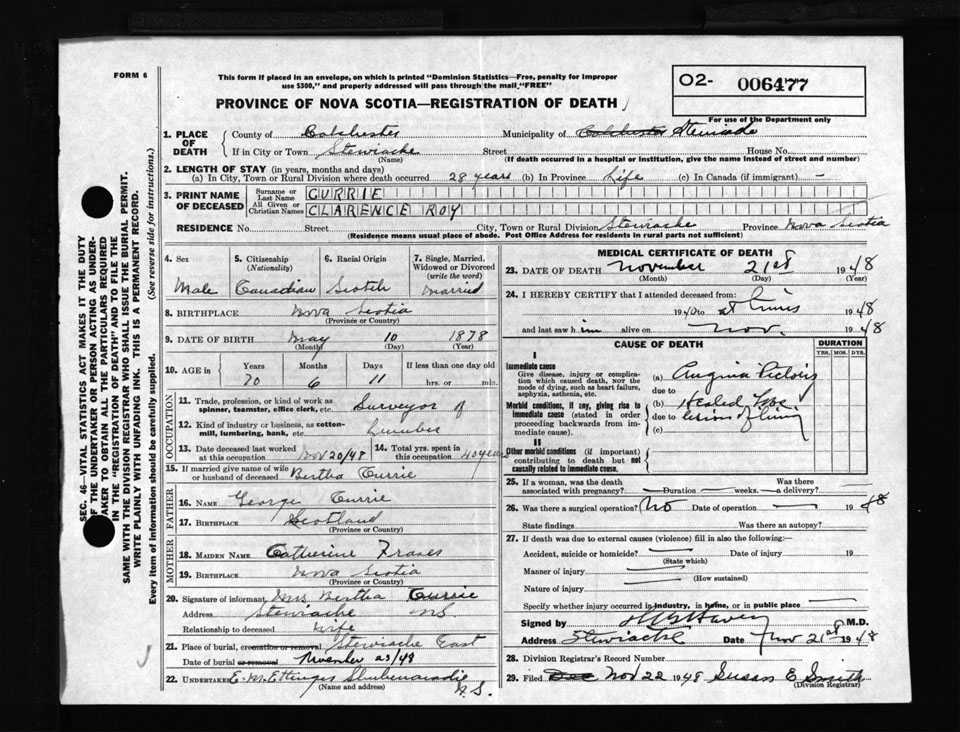 FORM 6
This form if placed in an envelope, on which is printed "Dominion Statistics—Free, penalty for improper
use $300," and properly addressed will pass through the mail "FREE"
O2- 006477
PROVINCE OF NOVA SCOTIA—REGISTRATION OF DEATH
For use of the Department only
1. PLACE OF DEATH
County of Colchester Municipality of Colchester Stewiacke
If in City or Town Stewiacke Street House No.
(Name) (If death occurred in a hospital or institution, give the name instead of street and number)
2. LENGTH OF STAY (in years, months and days)
(a) In City, Town or Rural Division where death occurred 28 years (b) In Province Life (c) In Canada (if immigrant) —
3. PRINT NAME OF DECEASED
Surname or Last Name CURRIE
All Given or Christian Names CLARENCE ROY
RESIDENCE No. Street City, Town or Rural Division Stewiacke Province Nova Scotia
(Residence means usual place of abode. Post Office Address for residents in rural parts not sufficient)
4. Sex 5. Citizenship (Nationality) 6. Racial Origin 7. Single, Married, Widowed or Divorced (write the word)
Male Canadian Scotch Married
8. BIRTHPLACE Nova Scotia
(Province or Country)
9. DATE OF BIRTH May 10 1878
(Month) (Day) (Year)
10. AGE in Years Months Days If less than one day old
70 6 11 hrs. or min.
OCCUPATION
11. Trade, profession, or kind of work as spinner, teamster, office clerk, etc. Surveyor of
12. Kind of industry or business, as cotton-mill, lumbering, bank, etc. Lumber
13. Date deceased last worked at this occupation Nov 20/48 14. Total yrs. spent in this occupation 40 years
15. If married give name of wife or husband of deceased Bertha Currie
FATHER
16. Name George Currie
17. Birthplace Scotland
(Province or Country)
MOTHER
18. Maiden Name Catherine Fraser
19. Birthplace Nova Scotia
(Province or Country)
20. Signature of informant Mrs Bertha Currie
Address Stewiacke NS
Relationship to deceased Wife
21. Place of burial, cremation or removal Stewiacke East
Date of burial or removal November 23/48
22. Undertaker E. M. Ettinger Shubenacadie
(Name and address) N.S.
MEDICAL CERTIFICATE OF DEATH
23. DATE OF DEATH November 21st 1948
(Month) (Day) (Year)
24. I HEREBY CERTIFY that I attended deceased from:
1940 to at times 1948
and last saw him alive on Nov. 1948
CAUSE OF DEATH DURATION
YRS. MOS. DYS.
I
Immediate cause
Give disease, injury or complication which caused death, NOR the mode of dying, such as heart failure, asphyxia, asthenia, etc.
(a) Angina Pectoris
due to
Morbid conditions, if any, giving rise to immediate cause (stated in order proceeding backwards from immediate cause).
(b) Healed
due to lesion of lung
(c)
II
Other morbid conditions (if important) contributing to death but not causally related to immediate cause.
25. If a woman, was the death associated with pregnancy? Duration weeks. Was there a delivery?
26. Was there a surgical operation? No Date of operation — 1948
State findings Was there an autopsy?
27. If death was due to external causes (violence) fill in also the following:—
Accident, suicide or homicide? Date of injury 19
(State which)
Manner of injury
(How sustained)
Nature of injury
Specify whether injury occurred in industry, in home, or in public place
Signed by M.D.
Address Stewiacke Date Nov 21st 1948
28. Division Registrar's Record Number
29. Filed Dec Nov 22 1948 Susan E Smith
(Division Registrar)
SEC. 46—VITAL STATISTICS ACT MAKES IT THE DUTY
OF THE UNDERTAKER OR PERSON ACTING AS UNDER-
TAKER TO OBTAIN ALL THE PARTICULARS REQUIRED
IN THE "REGISTRATION OF DEATH" AND TO FILE THE
SAME WITH THE DIVISION REGISTRAR WHO SHALL ISSUE THE BURIAL PERMIT.
WRITE PLAINLY WITH UNFADING INK. THIS IS A PERMANENT RECORD.
Every item of information should be carefully supplied. (See reverse side for instructions.)